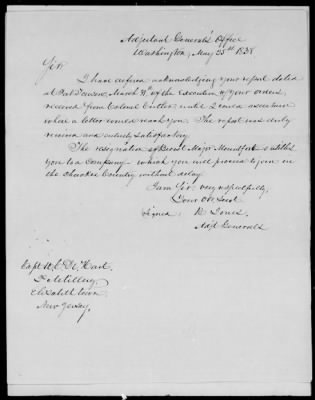 Adjutant General's Office
Washington, May 25th 1838
Sir
I have deferred acknowledging your report dated
at Fort Dawson, March 31st of the execution of your orders,
received from Colonel Cutler until I could ascertain
where a letter could reach you. The report was duly
received and entirely satisfactory.
The resignation of Brevet Major Mountfort entitles
you to a Company which you will proceed to join in
the Cherokee Country without delay.
I am Sir, very respectfully,
Your Ob. Servt
Signed R Jones
Adjt General
Capt W. C. De Hart,
2d Artillery,
Elizabeth town,
New Jersey.